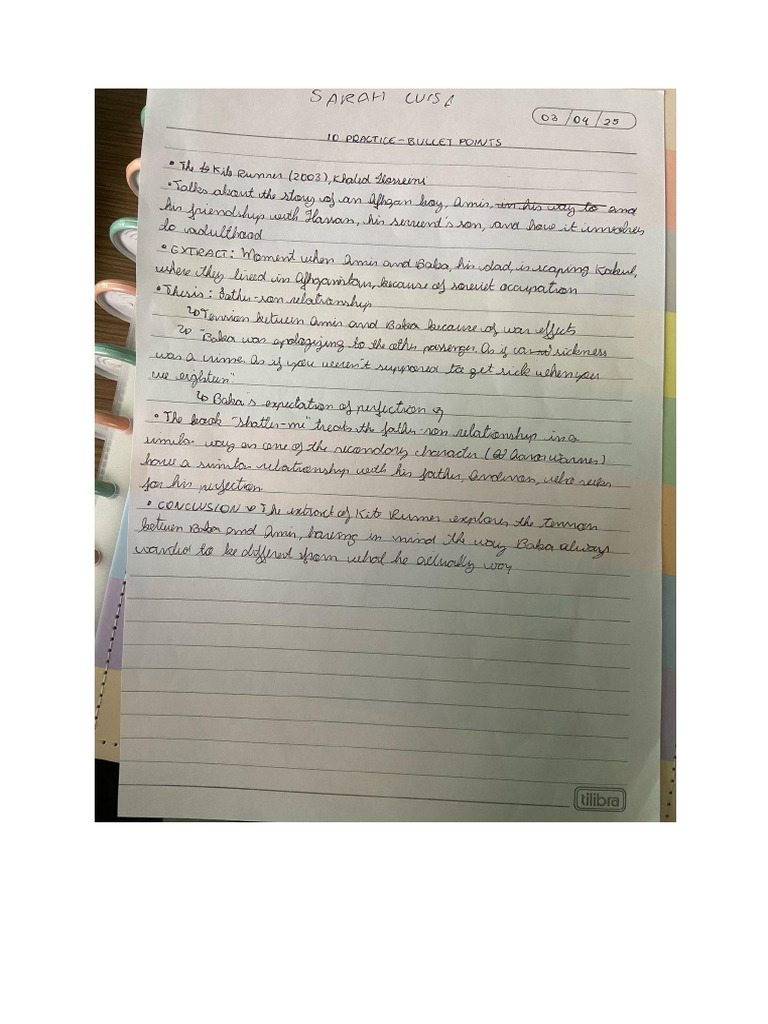 SARAH LUISA
03/04/25
IO PRACTICE - BULLET POINTS
• The Kite Runner (2003), Khaled Hosseini
• Talks about the story of an Afhgan boy, Amir, in his way to and
his friendship with Hassan, his servent's son, and how it innvolves
to adulthood
• EXTRACT: Moment when Amir and Baba, his dad, is scaping Kabul,
where they lived in Afhganistan, because of soreviet occupation
• Thesis: Father-son relationship
↳ Tension between Amir and Baba because of war effects
↳ "Baba was apologizing to the other passenger. As if sickness
was a crime. As if you weren't supposed to get sick when you
we eighteen"
↳ Baba's expectation of perfection
• The book "Shatter-me" treats the father-son relationship in a
similar way as one of the secondary character (Aaron Warner)
have a similar relationship with his father, Anderson, who seeks
for his perfection
• CONCLUSION The extract of Kite Runner explores the tension
between Baba and Amir, having in mind the way Baba always
wanted to be differed from what he actually way
tilibra